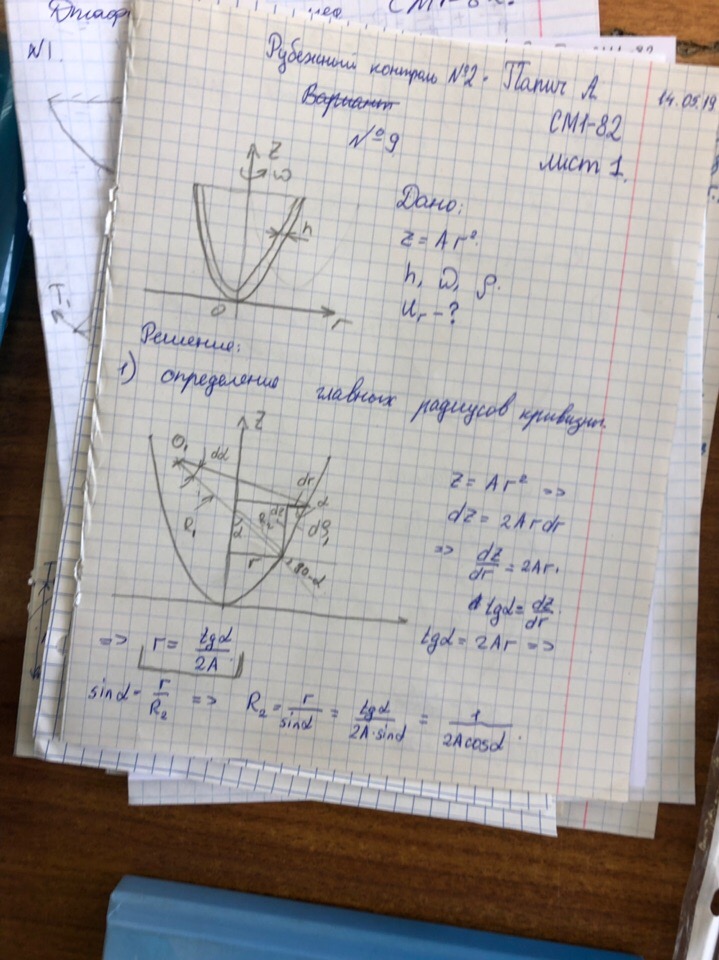 СМ1-82
N1.
Рубежный контроль №2. Папич А.
14.05.19
Вариант
СМ1-82
№9
лист 1.
z
ω
h
0
r
Дано:
z = Ar².
h, ω, ρ.
Ur - ?
Решение:
1) определение главных радиусов кривизн.
z
O₁
dα
dr
α
R₁
R₂
dz
dρ₁
α
r
90-α
z = Ar² =>
dz = 2Ardr
=> dz/dr = 2Ar.
tgα = dz/dr.
tgα = 2Ar =>
=> r = tgα/2A.
sinα = r/R₂ => R₂ = r/sinα = tgα/2A·sinα = 1/2Acosα.